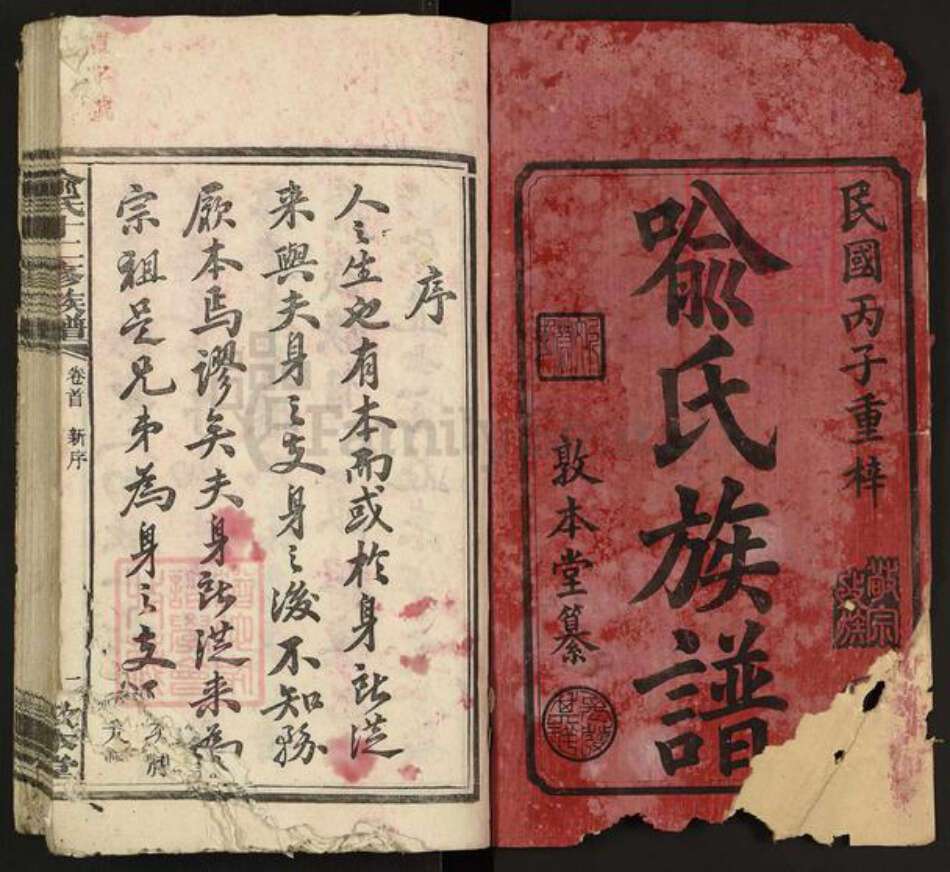 民國丙子重梓
喩氏族譜
敦本堂纂
序
人之生也有本而或於身所從
来與夫身之支身之後不知務
厥本焉謬矣夫身所從来為
宗祖是兄弟為身之支
喩氏十二修族譜
卷首 新序
一
敦本堂